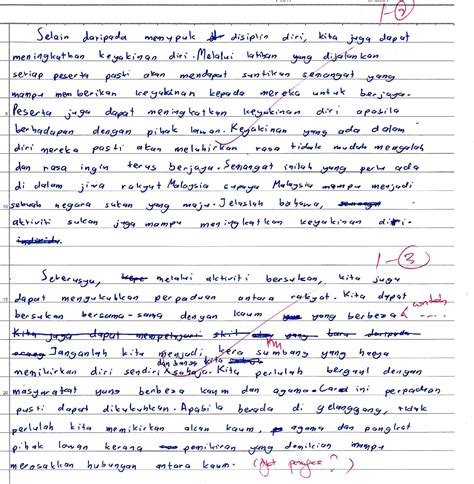 1-②
Selain daripada menyupuk disiplin diri, kita juga dapat
meningkatkan keyakinan diri. Melalui latihan yang dijalankan
setiap peserta pasti akan mendapat suntikan semangat yang
mampu memberikan keyakinan kepada mereka untuk berjaya.
Peserta juga dapat meningkatkan keyakinan diri apabila
berhadapan dengan pihak lawan. Keyakinan yang ada dalam
diri mereka pasti akan melahirkan rasa tidak mudah mengalah
dan rasa ingin terus berjaya. Semangat inilah yang perlu ada
di dalam jiwa rakyat Malaysia supaya Malaysia mampu menjadi
sebuah negara sukan yang maju. Jelaslah bahawa,
aktiviti sukan juga mampu meningkatkan keyakinan diri.
1-③
Seterusnya, melalui aktiviti bersukan, kita juga
dapat mengukuhkan perpaduan antara rakyat. Kita dapat
bersukan bersama-sama dengan kaum yang berbeza contoh ....
Kita juga dapat mempelajari skil yang baru daripada
Janganlah kita menjadi kera sumbang yang hanya
dan bangsa kita
memikirkan diri sendiri sahaja. Kita perlulah bergaul dengan
masyarakat yang berbeza kaum dan agama. Cara ini perpaduan
pasti dapat dikukuhkan. Apabila berada di gelanggang, tidak
perlulah kita memikirkan akan kaum, agama dan pangkat
pihak lawan kerana pemikiran yang demikian mampu
merosakkan hubungan antara kaum.